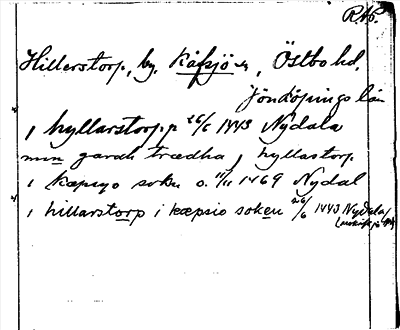 RAP.
Hillerstorp, by, Kåfsjö sn, Östbo hd,
Jönköpings län
i hyllarstorpp 26/6 1443 Nydala
min gardh trædha, hyllastorp
i kæpsyo sokn o. 11/11 1469 Nydal
i hillarstorp i kæpsio soken 26/6 1443 Nydala